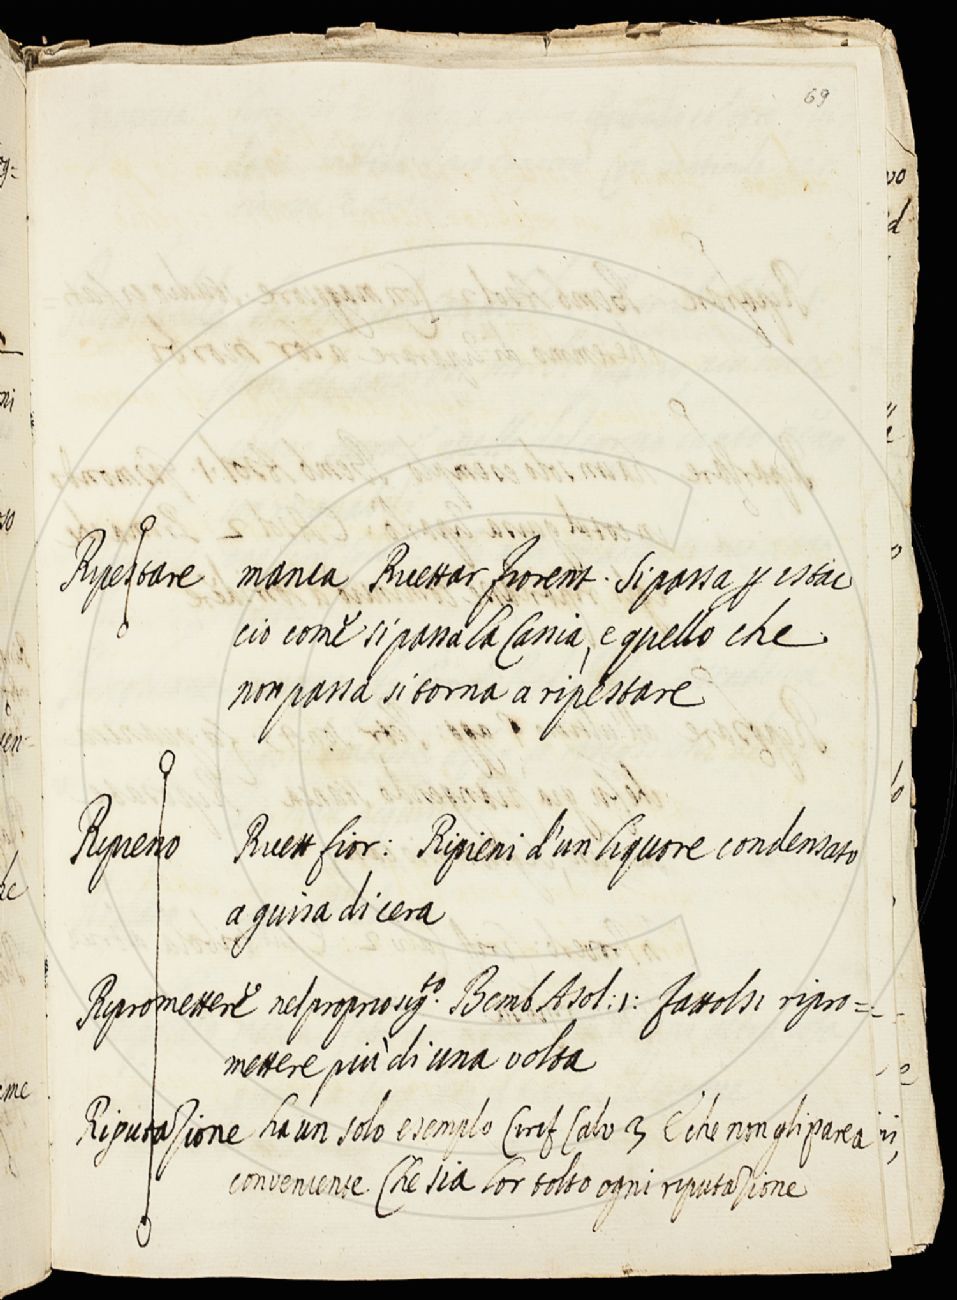 69
Ripestare manca Ricettar fiorent. Si passa p istac
cio come si passa la Cassia, e quello che
non passa si torna a ripestare
Ripieno Ricett fior: Ripieni d'un liquore condensato
a guisa di cera
Ripromettere nel proprio sig.to Bemb Asol: 1: fattolsi ripro=
mettere più di una volta
Riputazione ha un solo esempio Cirif Calv 3 E che non gli parea
conveniente Che sia lor tolto ogni riputazione